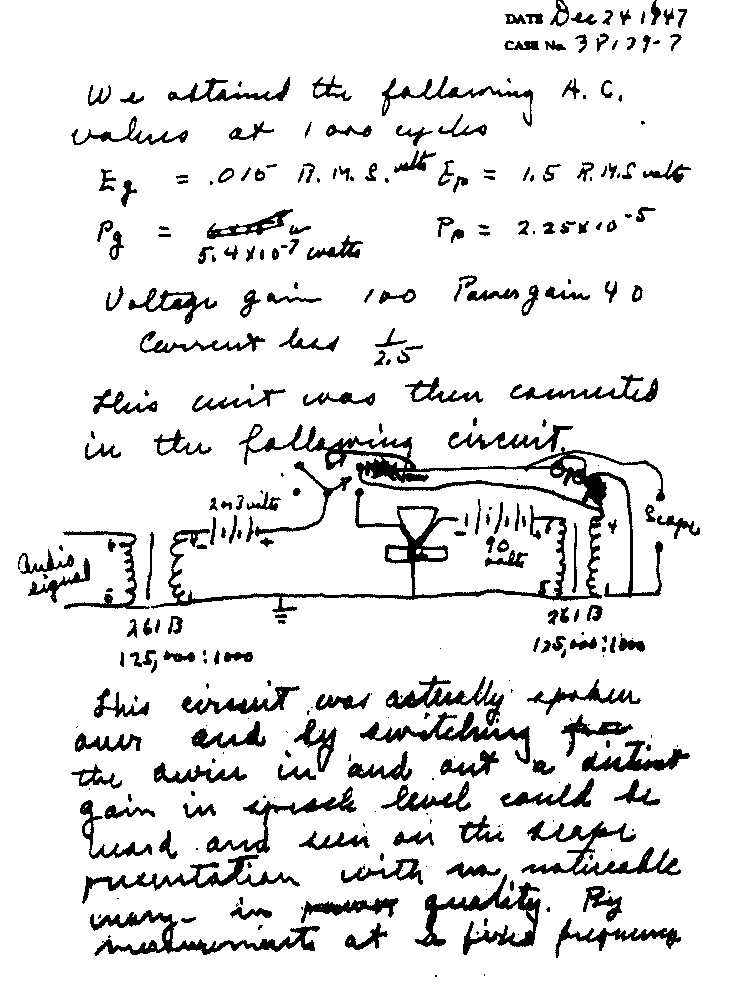 DATE Dec 24 1947
CASE No. 38139-7
We obtained the following A. C.
values at 1000 cycles
Eg = .015 R. M. S. volts Ep = 1.5 R.M.S volts
Pg =
5.4 x 10-7 watts Pp = 2.25 x 10-5
Voltage gain 100 Power gain 40
Current loss 1/2.5
This unit was then connected
in the following circuit.
2 or 3 volts
Scope
Audio
signal
90
volts
- +
- +
6
5
4
1
6
5
4
1
261 B
125,000:1000
261 B
125,000:1000
This circuit was actually spoken
over and by switching
the device in and out a distinct
gain in speech level could be
heard and seen on the scope
presentation with no noticeable
in quality. By
measurements at a fixed frequency